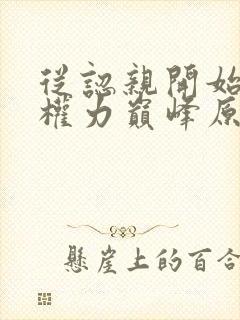 從認親開始
權力巔峰原
懸崖上的百合